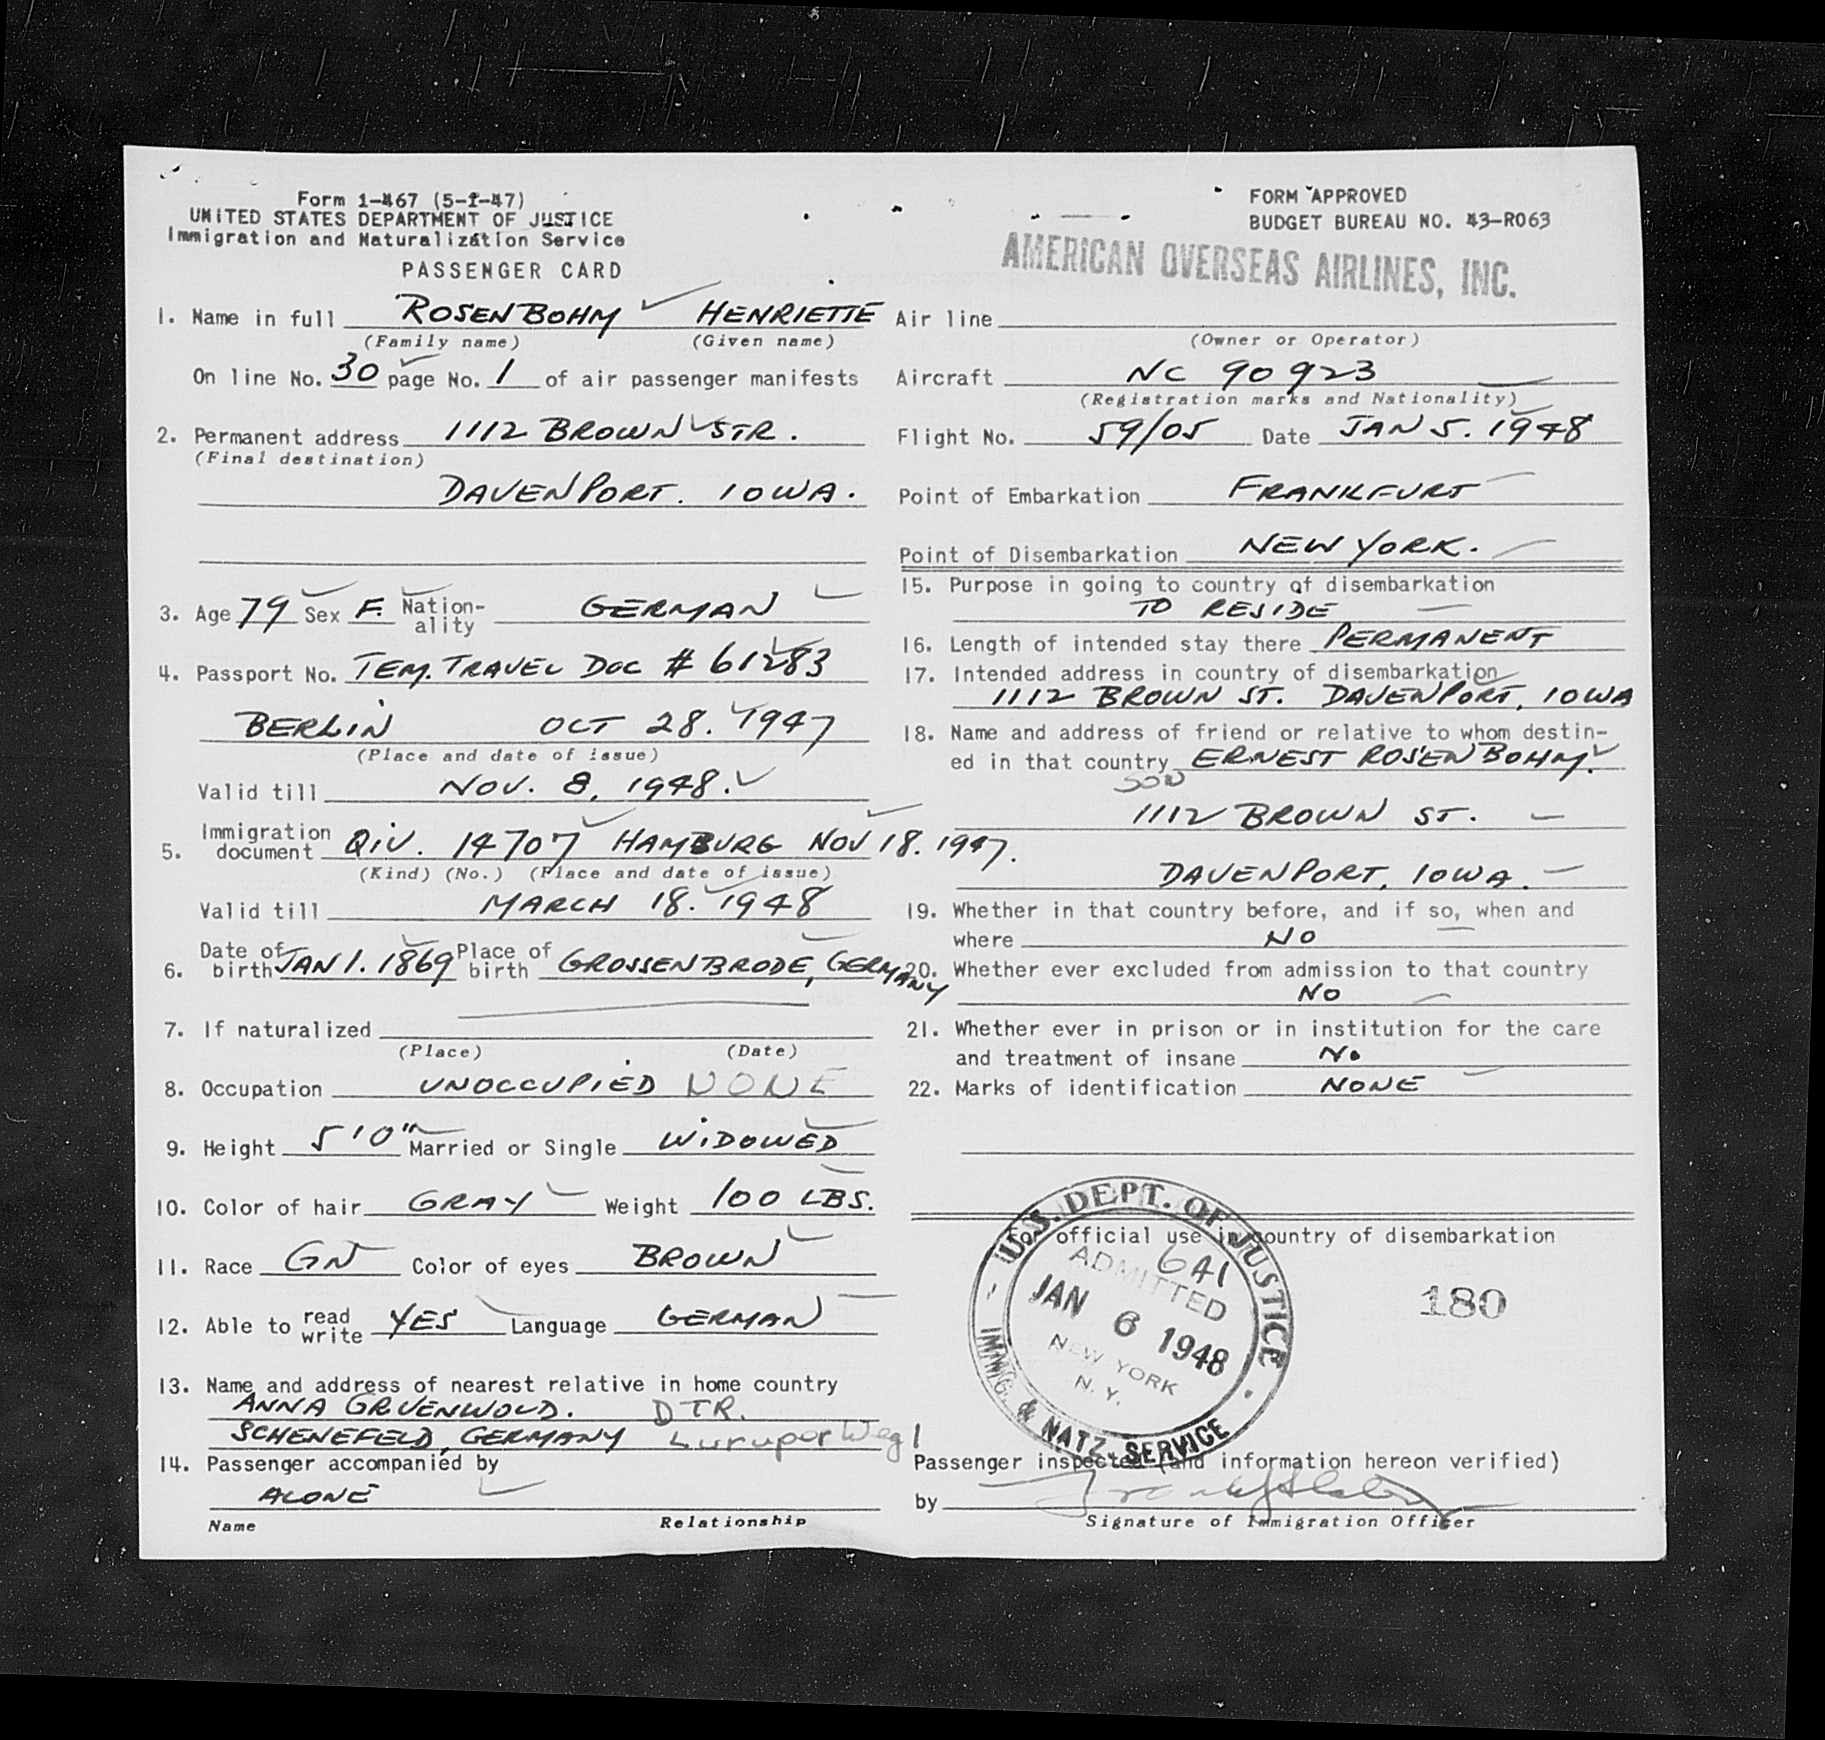 Form 1-467 (5-1-47)
UNITED STATES DEPARTMENT OF JUSTICE
Immigration and Naturalization Service
PASSENGER CARD
1. Name in full ROSENBOHM HENRIETTE
(Family name) (Given name)
On line No. 30 page No. 1 of air passenger manifests
2. Permanent address 1112 BROWN STR.
(Final destination)
DAVENPORT. IOWA.
3. Age 79 Sex F. Nation-
ality GERMAN
4. Passport No. TEM. TRAVEL DOC # 61283
BERLIN OCT 28. 1947
(Place and date of issue)
Valid till NOV. 8, 1948.
5. Immigration
document QIV. 14707 HAMBURG NOV 18. 1947.
(Kind) (No.) (Place and date of issue)
Valid till MARCH 18. 1948
6. Date of
birth JAN 1. 1869 Place of
birth GROSSENBRODE, GERMANY
7. If naturalized
(Place) (Date)
8. Occupation UNOCCUPIED NONE
9. Height 5'0" Married or Single WIDOWED
10. Color of hair GRAY Weight 100 LBS.
11. Race GN Color of eyes BROWN
12. Able to read
write YES Language GERMAN
13. Name and address of nearest relative in home country
ANNA GRUENWOLD. DTR.
SCHENEFELD, GERMANY Luruper Weg 1
14. Passenger accompanied by
ALONE
Name Relationship
FORM APPROVED
BUDGET BUREAU NO. 43-R063
AMERICAN OVERSEAS AIRLINES, INC.
Air line
(Owner or Operator)
Aircraft NC 90923
(Registration marks and Nationality)
Flight No. 59/05 Date JAN 5. 1948
Point of Embarkation FRANKFURT
Point of Disembarkation NEW YORK.
15. Purpose in going to country of disembarkation
TO RESIDE
16. Length of intended stay there PERMANENT
17. Intended address in country of disembarkation
1112 BROWN ST. DAVENPORT, IOWA
18. Name and address of friend or relative to whom destin-
ed in that country ERNEST ROSENBOHM.
SON
1112 BROWN ST.
DAVENPORT, IOWA.
19. Whether in that country before, and if so, when and
where NO
20. Whether ever excluded from admission to that country
NO
21. Whether ever in prison or in institution for the care
and treatment of insane No
22. Marks of identification NONE
For official use in country of disembarkation
U.S. DEPT. OF JUSTICE
IMMIG. & NATZ. SERVICE
ADMITTED
JAN 6 1948
NEW YORK
N.Y.
6A1
180
Passenger inspected (and information hereon verified)
by
Signature of Immigration Officer